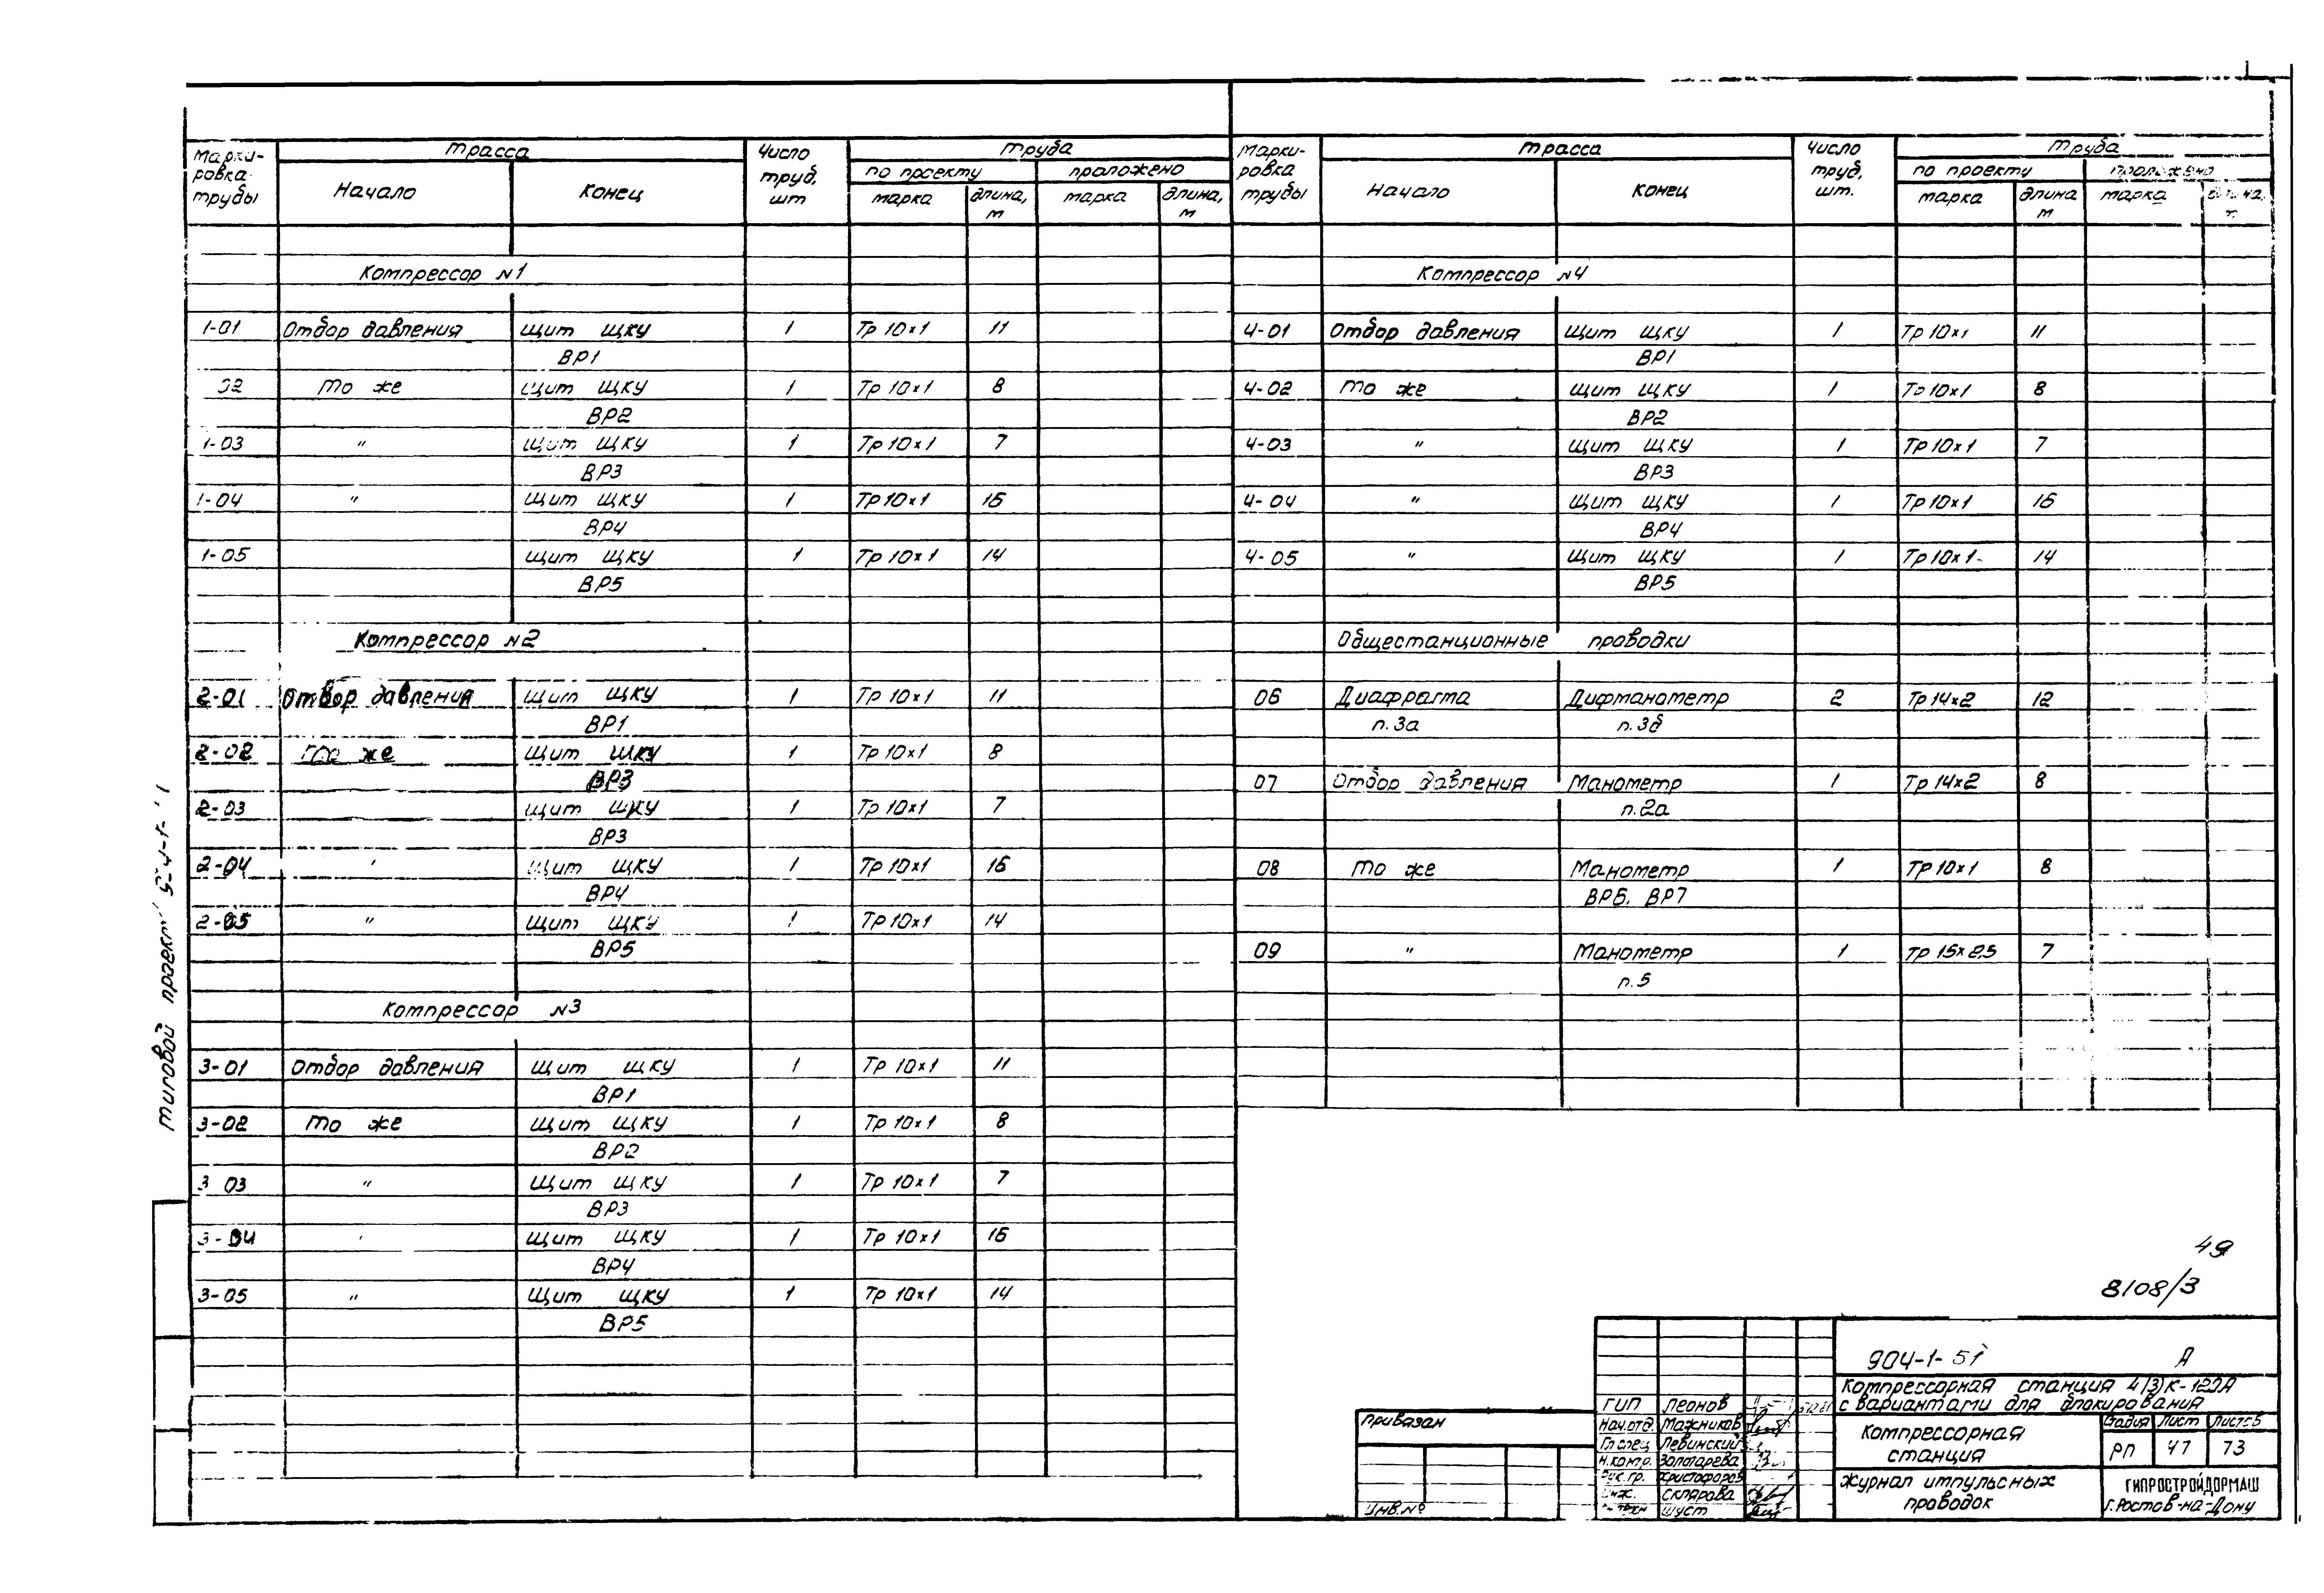 Типовой проект
Марки-ровка трубы | Трасса | Число труб, шт | Труба
Начало | Конец | по проекту | проложено
марка | длина, м | марка | длина, м
Компрессор №1
1-01 Отбор давления Щит ЩКУ 1 Тр 10×1 11
ВР1
02 То же Щит ЩКУ 1 Тр 10×1 8
ВР2
1-03 " Щит ЩКУ 1 Тр 10×1 7
ВР3
1-04 " Щит ЩКУ 1 Тр 10×1 16
ВР4
1-05 Щит ЩКУ 1 Тр 10×1 14
ВР5
Компрессор №2
2-01 Отбор давления Щит ЩКУ 1 Тр 10×1 11
ВР1
2-02 То же Щит ЩКУ 1 Тр 10×1 8
ВР3
2-03 Щит ЩКУ 1 Тр 10×1 7
ВР3
2-04 " Щит ЩКУ 1 Тр 10×1 16
ВР4
2-05 " Щит ЩКУ 1 Тр 10×1 14
ВР5
Компрессор №3
3-01 Отбор давления Щит ЩКУ 1 Тр 10×1 11
ВР1
3-02 То же Щит ЩКУ 1 Тр 10×1 8
ВР2
3 03 " Щит ЩКУ 1 Тр 10×1 7
ВР3
3-04 Щит ЩКУ 1 Тр 10×1 16
ВР4
3-05 " Щит ЩКУ 1 Тр 10×1 14
ВР5
Марки-ровка трубы | Трасса | Число труб, шт. | Труба
Начало | Конец | по проекту | проложено
марка | длина м | марка | длина, м
Компрессор №4
4-01 Отбор давления Щит ЩКУ 1 Тр 10×1 11
ВР1
4-02 То же Щит ЩКУ 1 Тр 10×1 8
ВР2
4-03 " Щит ЩКУ 1 Тр 10×1 7
ВР3
4-04 " Щит ЩКУ 1 Тр 10×1 16
ВР4
4-05 " Щит ЩКУ 1 Тр 10×1 14
ВР5
Общестанционные проводки
06 Диафрагма Дифманометр 2 Тр 14×2 12
п.3а п.3б
07 Отбор давления Манометр 1 Тр 14×2 8
п.2а
08 То же Манометр 1 Тр 10×1 8
ВР6, ВР7
09 " Манометр 1 Тр 15×2,5 7
п.5
49
8108/3
Привязан
Инв.№
ГИП Леонов
Нач.отд. Мажников
Гл.спец Левинский
Н.контр. Золотарева
Рук.гр. Христофоров
Инж. Склярова
Шуст
904-1-51 А
Компрессорная станция 4(3)К-120А
с вариантами для блокирования
Компрессорная станция
Стадия Лист Листов
РП 47 73
Журнал импульсных проводок
ГИПРОСТРОЙДОРМАШ
г.Ростов-на-Дону